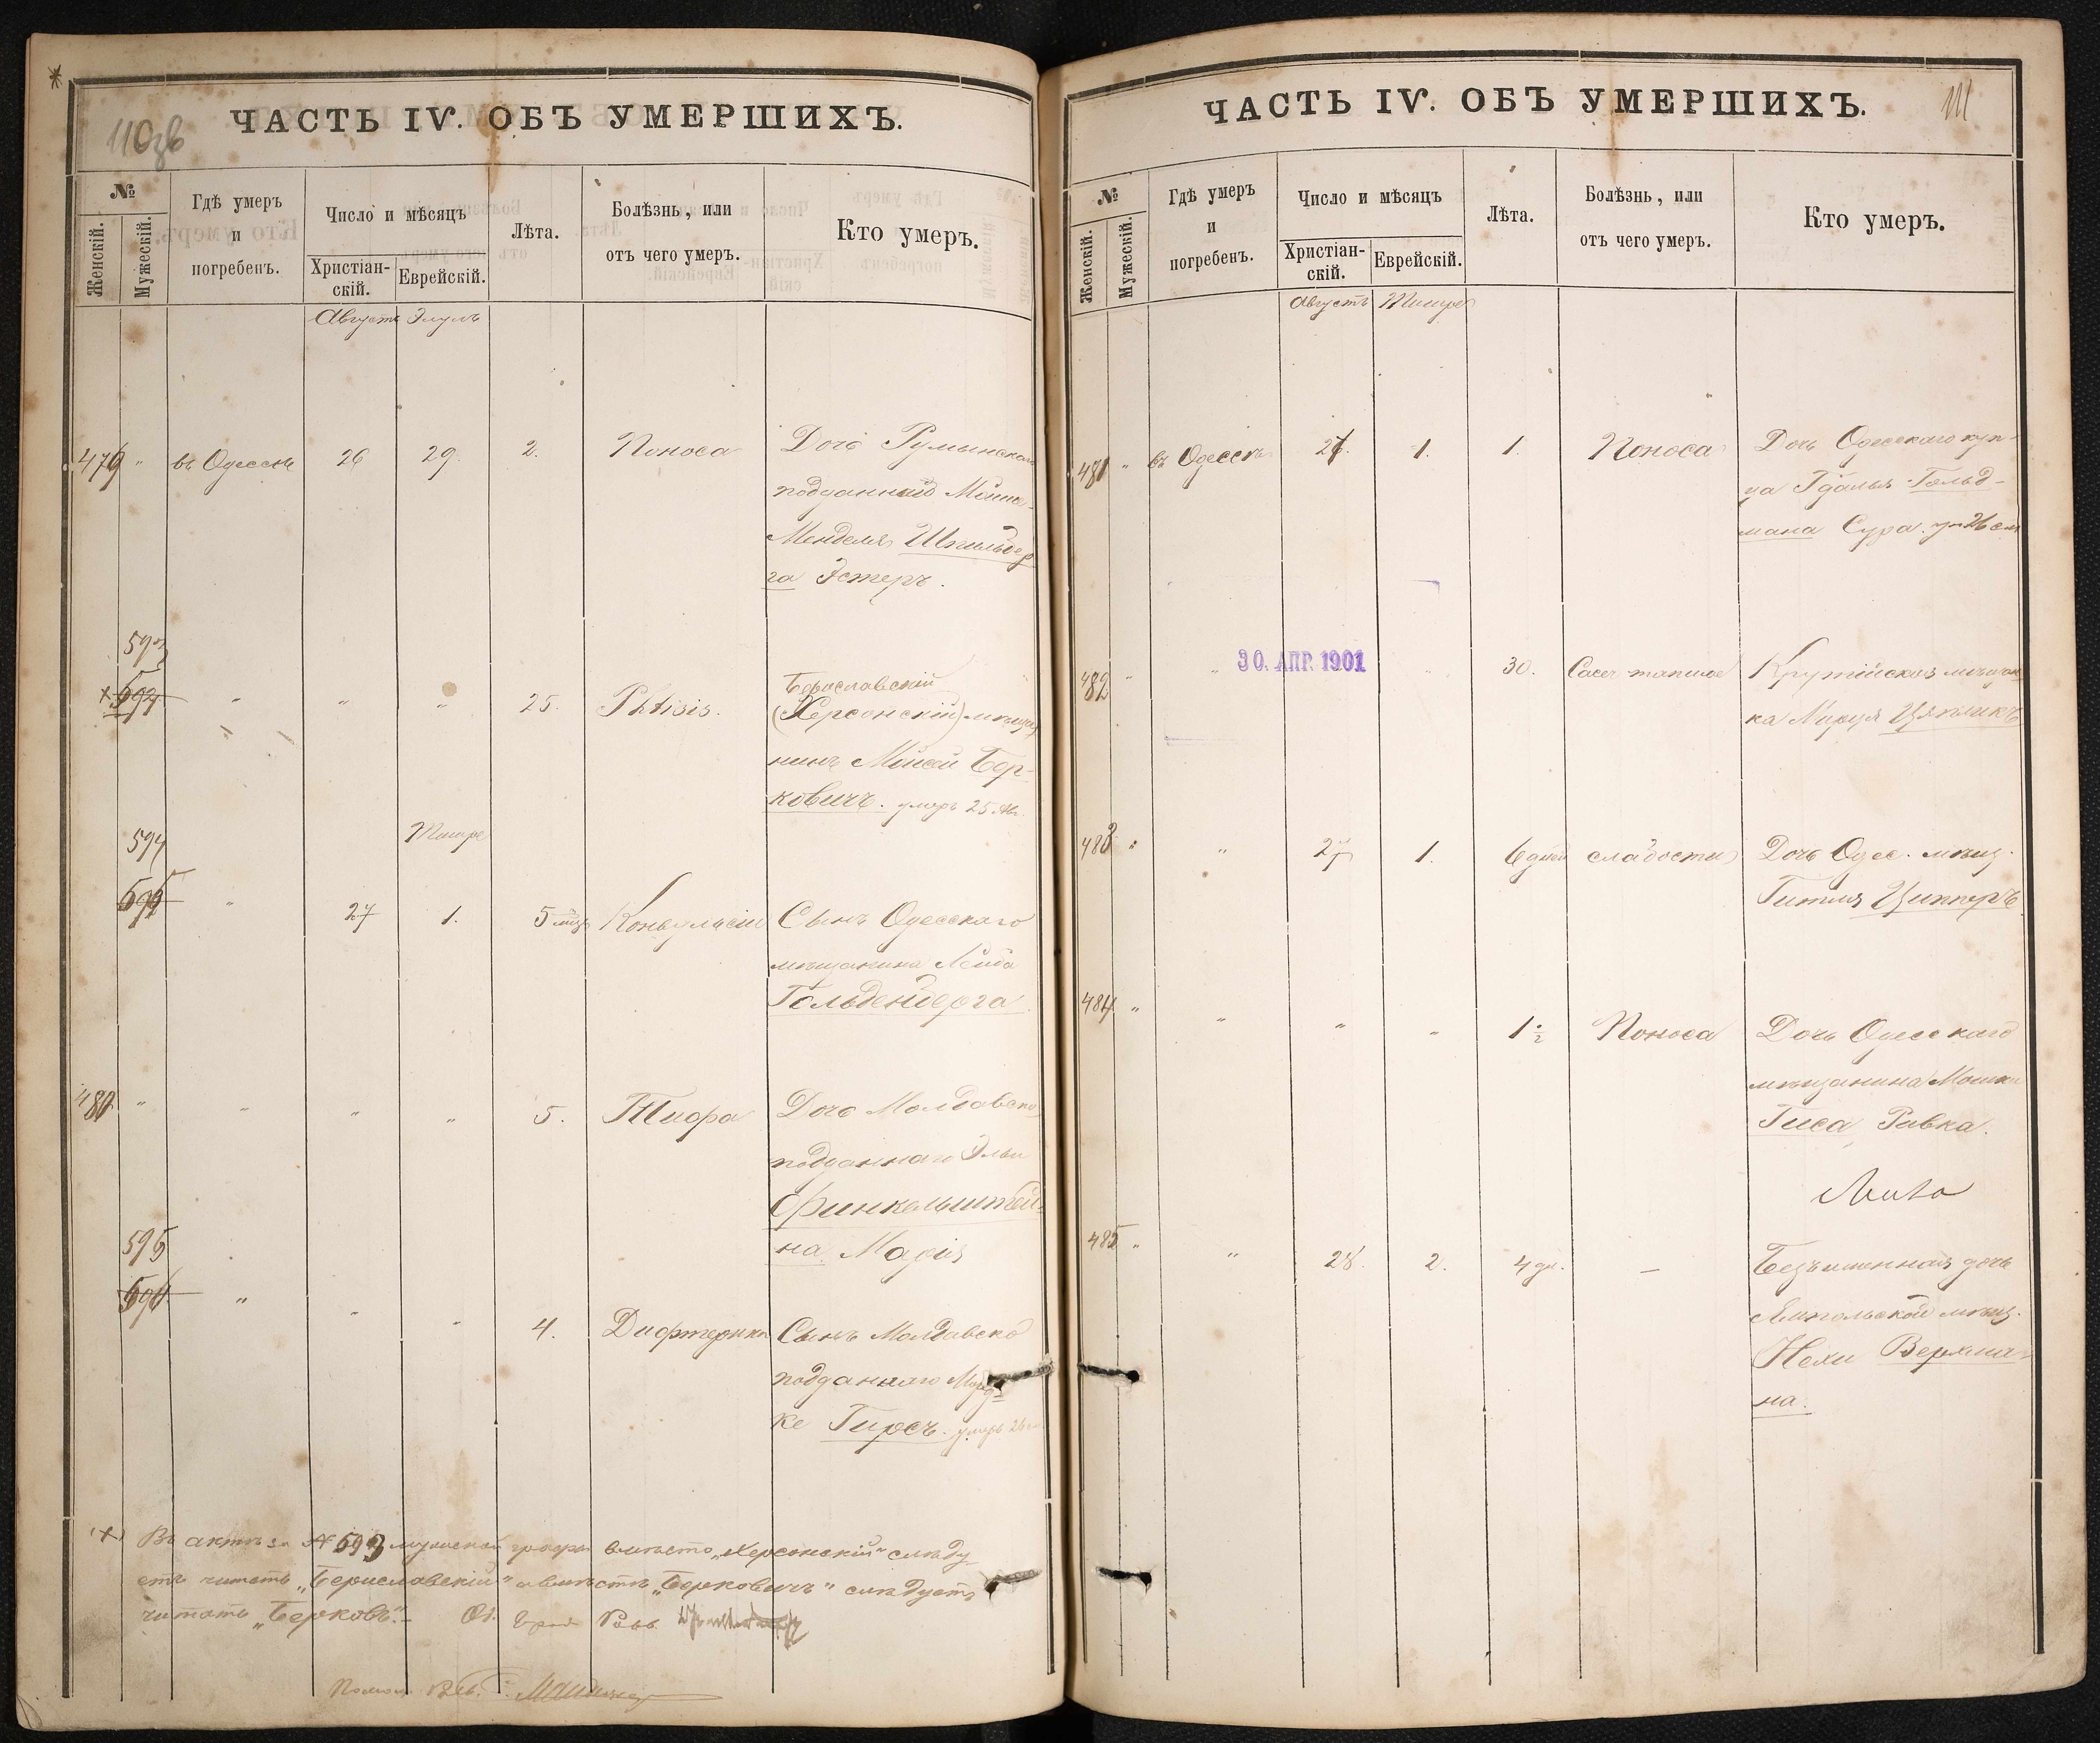 110об
ЧАСТЬ IV. ОБЪ УМЕРШИХЪ.
№
Женскій.
Мужескій.
Гдѣ умеръ
и
погребенъ.
Число и мѣсяцъ
Христіан-
скій.
Еврейскій.
Лѣта.
Болѣзнь, или
отъ чего умеръ.
Кто умеръ.
Августъ Элулъ
479 " въ Одессѣ 26 29. 2. Поноса Дочь Румынскаго
подданнаго
Менделя Шпильбер
га Эстеръ.
593
х 592 " " " 25. Phtisis. Бериславскій
(Херсонскій) мѣща
нинъ Мойсей Бер-
ковичъ. умеръ 25 Ав.
Тишре
594
595 " 27 1. 5 мѣс Конвульсіи Сынъ Одесскаго
мѣщанина Лейба
Гольденберга
480 " " " " 5. Тифа Дочь Молдавско
подданнаго Эльи
Финкельштей-
на Марія
595
596 " " " 4. Дифтерита Сынъ Молдавско
подданнаго Морд-
ке Гирсъ. умеръ 26
(х) Въ актѣ за № 593 мужской графы вмѣсто „Херсонскій" слѣду-
етъ читать „Бериславскій" а вмѣсто „Берковичъ" слѣдуетъ
читать „Берковъ". Од. Равв.
Помощ. Рав.
111
ЧАСТЬ IV. ОБЪ УМЕРШИХЪ.
№
Женскій.
Мужескій.
Гдѣ умеръ
и
погребенъ.
Число и мѣсяцъ
Христіан-
скій.
Еврейскій.
Лѣта.
Болѣзнь, или
отъ чего умеръ.
Кто умеръ.
Августъ Тишре
481 " въ Одессѣ 27. 1. 1. Поноса Дочь Одесскаго куп-
ца Гдалья Гольд-
мана Сура. ум 26 сего
30. АПР. 1901
482 " " " 30. Крутійская мѣщан
ка Маруся Цяпликъ
483 " " 27 1. 6 дней слабости Дочь Одес. мѣщ.
Гитля Ципперъ
484 " " " " 1 ½ Поноса Дочь Одесскаго
мѣщанина Мошки
Гиса Ривка.
485 " " 28. 2. 4 дн. — Безъименная дочь
Ямпольской мѣщ.
Нехи Верхма-
на.